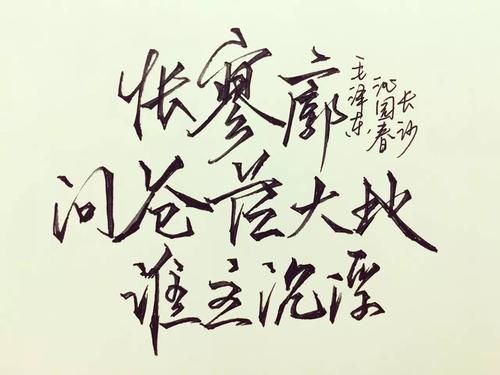 怅寥廓
问苍茫大地
谁主沉浮
毛泽东
沁园春
长沙